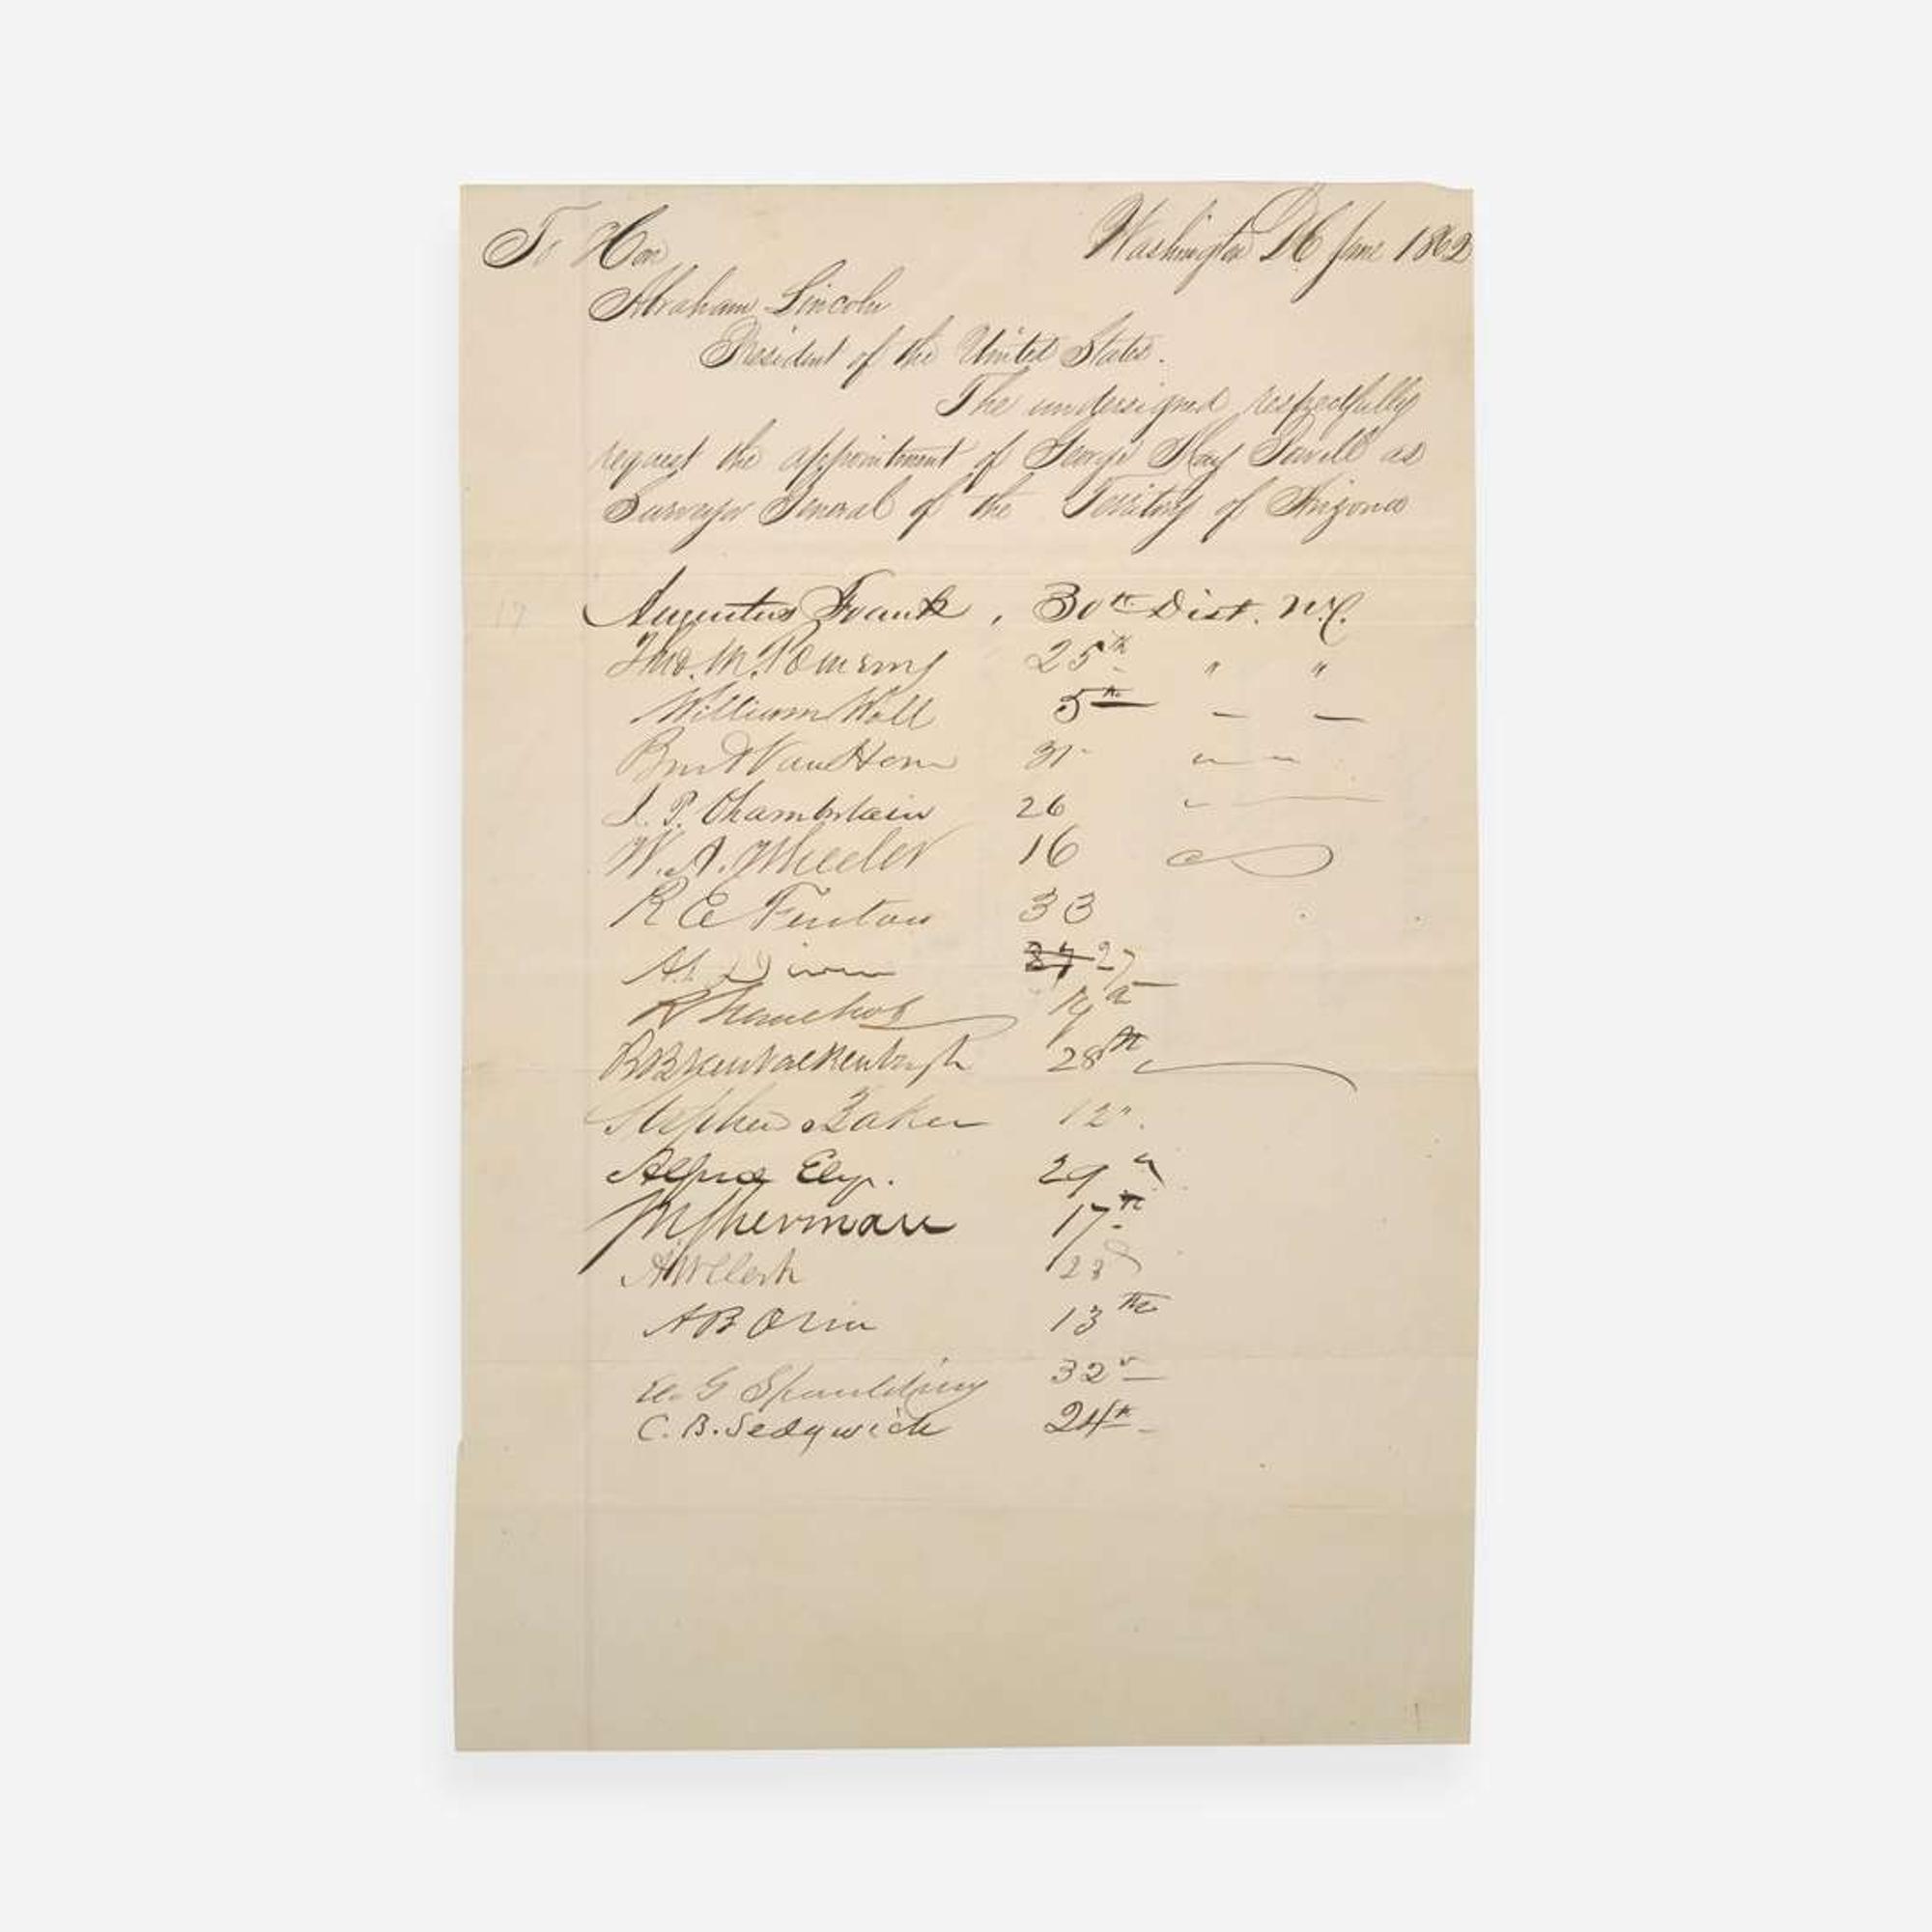 To Hon Washington DC June 1862
Abraham Lincoln
President of the United States.
The undersigned respectfully
request the appointment of George May Powell as
Surveyor General of the Territory of Arizona
Augustus Frank, 30th Dist. N.Y.
Theo. M. Pomeroy 25th " "
William Wall 5th — —
Burt Van Horn 31
J. P. Chamberlain 26
W. A. Wheeler 16
R E Fenton 33
A S Diven 37 27
R Franchot 19th
R B Van Valkenburgh 28th
Stephen Baker 12"
Alfred Ely. 29
Sherman 17th
A W Clark 23
A B Olin 13th
E. G Spaulding 32
C. B. Sedgwick 24th
17